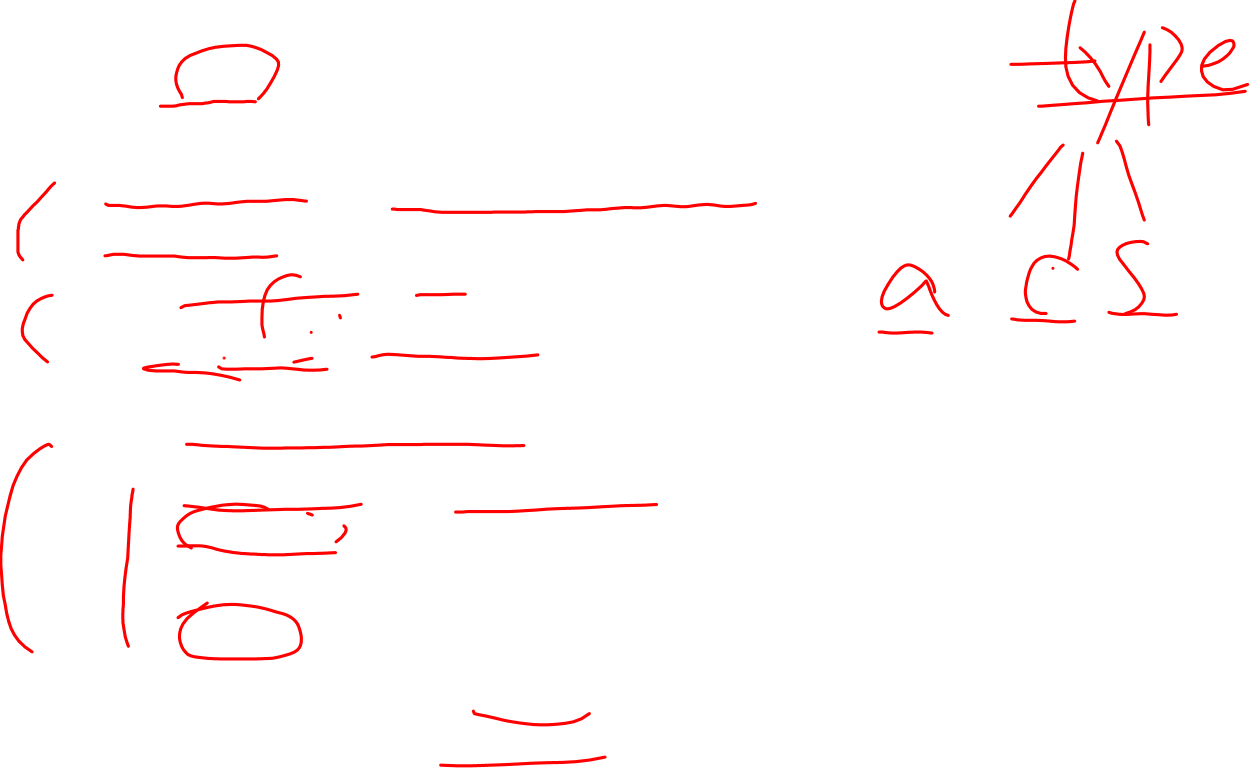 type
a c s